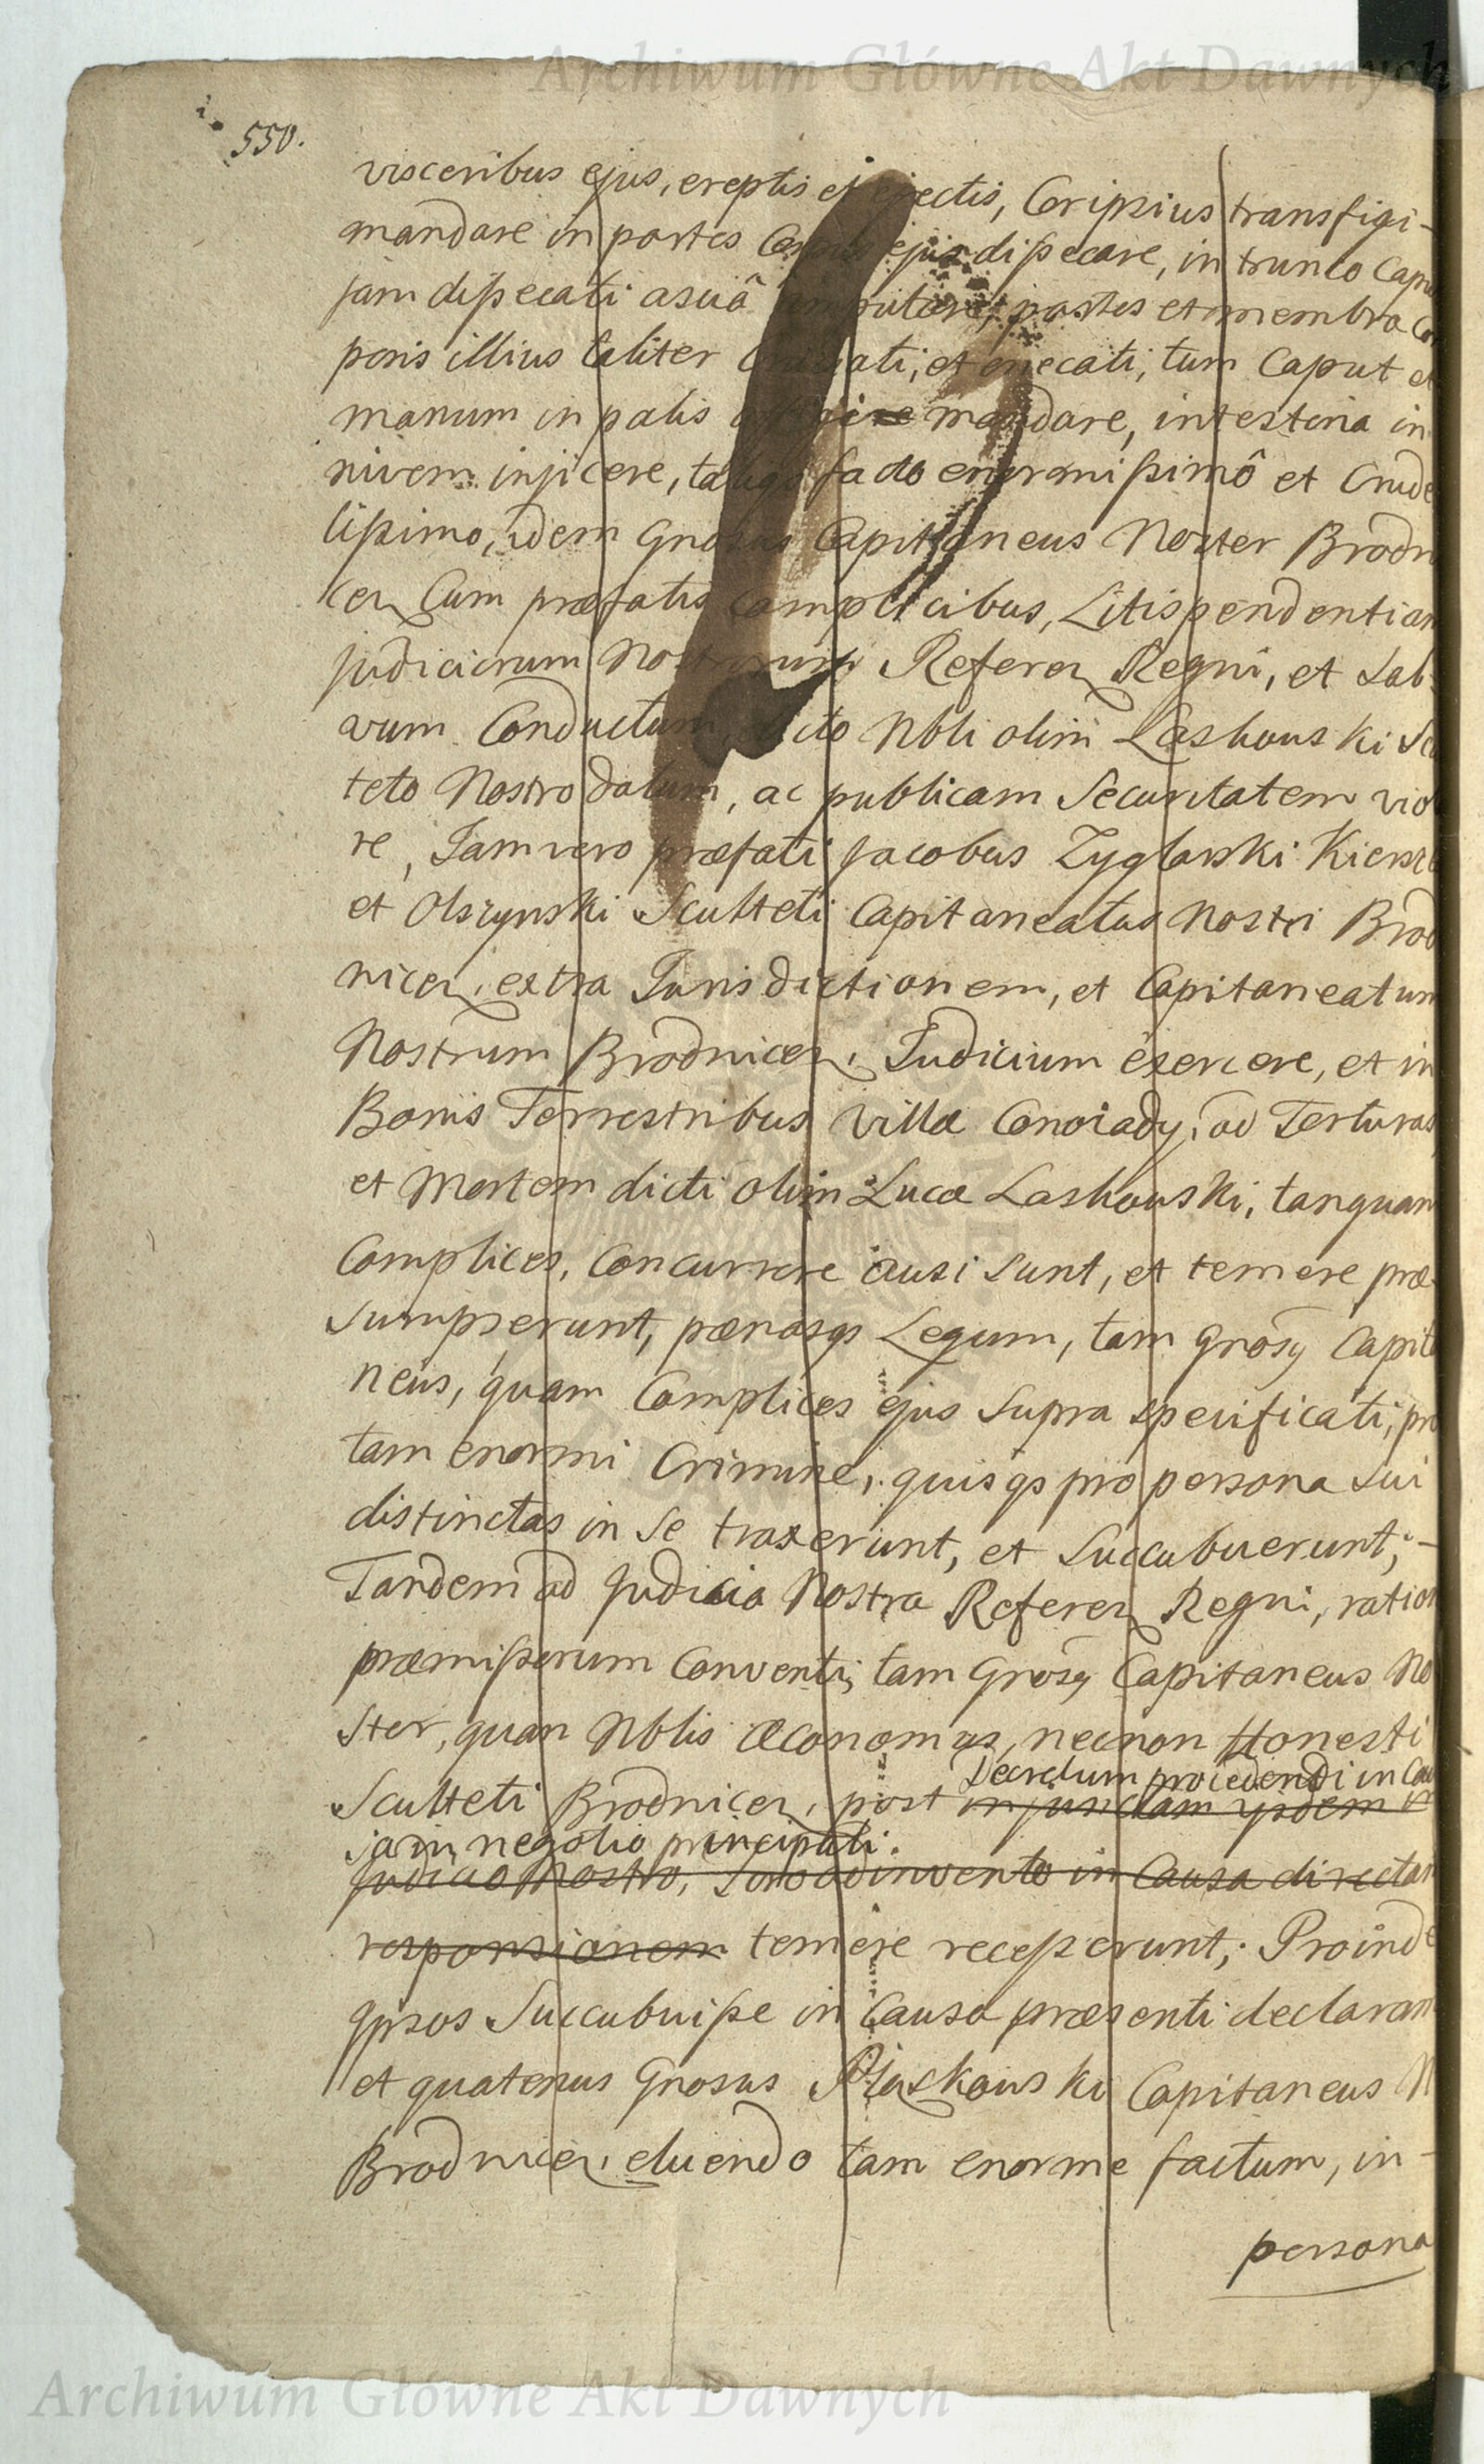 Archiwum Główne Akt Dawnych
550.
visceribus ejus, ereptis et ejectis, Cor ipsius transfigi-
mandare in partes Corpus ejus dißecare, in trunco Capu
jam dißecati asuâ putare, partes et membra Cor
poris illius taliter Cruciati, et enecati, tum Caput et
manum in palis mandare, intestina in
nivem injicere, taliqs facto enormißimô et Crude
lißimo, idem Gnosus Capitaneus Noster Brodni
cen Cum præfatis Complicibus, Litispendentiam
Judiciorum Nostrorum Referen Regni, et Sal-
vum Conductum, dicto Nbli olim Laskowski Scu
teto Nostro datum, ac publicam Securitatem viola
re, Jam vero præfati Jacobus Zyglarski
et Olszynski Sculteti Capitaneatus Nostri Brod
nicen, extra Jurisdictionem, et Capitaneatum
Nostrum Brodnicen, Judicium exercere, et in
Bonis Terrestribus Villæ Conoiady, ad Torturas
et Mortem dicti olim Lucæ Laskowski, tanquam
Complices, Concurrere ausi sunt, et temere præ
sumpserunt, pænasqs Legum, tam Grosy Capita
neus, quam Complices ejus supra specificati, pro
tam enormi Crimine, quisqs pro persona sui
distinctas in se traxerunt, et succubuerunt; -
Tandem ad Judicia Nostra Referen Regni, ration
præmißorum Conventi, tam Grosy Capitaneus No
ster, quan Nblis Œconomus, necnon Honesti
Decretum procedendi in Cau
Sculteti Brodnicen, post injunctam ipsdem in
sa in negotio principali.
Judicio Nostro, adinvento in Causa directam
responsionem temere receßerunt; Proinde
ipsos Succubuiße in Causa præsenti declaram
et quatenus Gnosus Piaskowski Capitaneus N
Brodnicen, eluendo tam enorme factum, in -
persona
Archiwum Główne Akt Dawnych